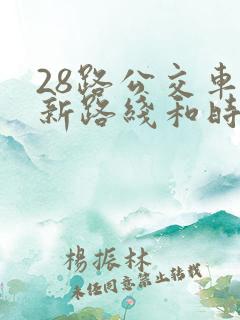 28路公交车
新路线和时
杨振林
未经同意禁止转载